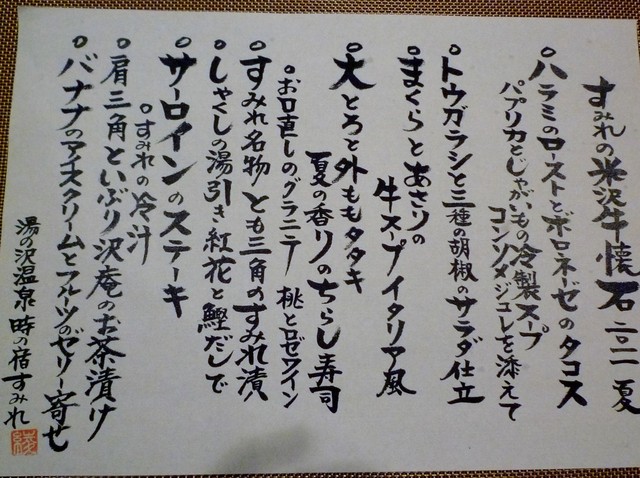 すみれの米沢牛懐石 二〇一一 夏
○ハラミのローストとボロネーゼのタコス
パプリカとじゃがいもの冷製スープ
コンソメジュレを添えて
○トウガラシと三種の胡椒のサラダ仕立
○まくらとあさりの
牛スープイタリア風
○大とろと外ももタタキ
夏の香りのちらし寿司
○お口直しのグラニテ 桃とロゼワイン
○すみれ名物 とも三角のすみれ漬
○しゃくしの湯引き 紅花と鰹だしで
○サーロインのステーキ
○すみれの冷汁
○肩三角といぶり沢庵のお茶漬け
○バナナのアイスクリームとフルーツのゼリー寄せ
湯の沢温泉 時の宿 すみれ